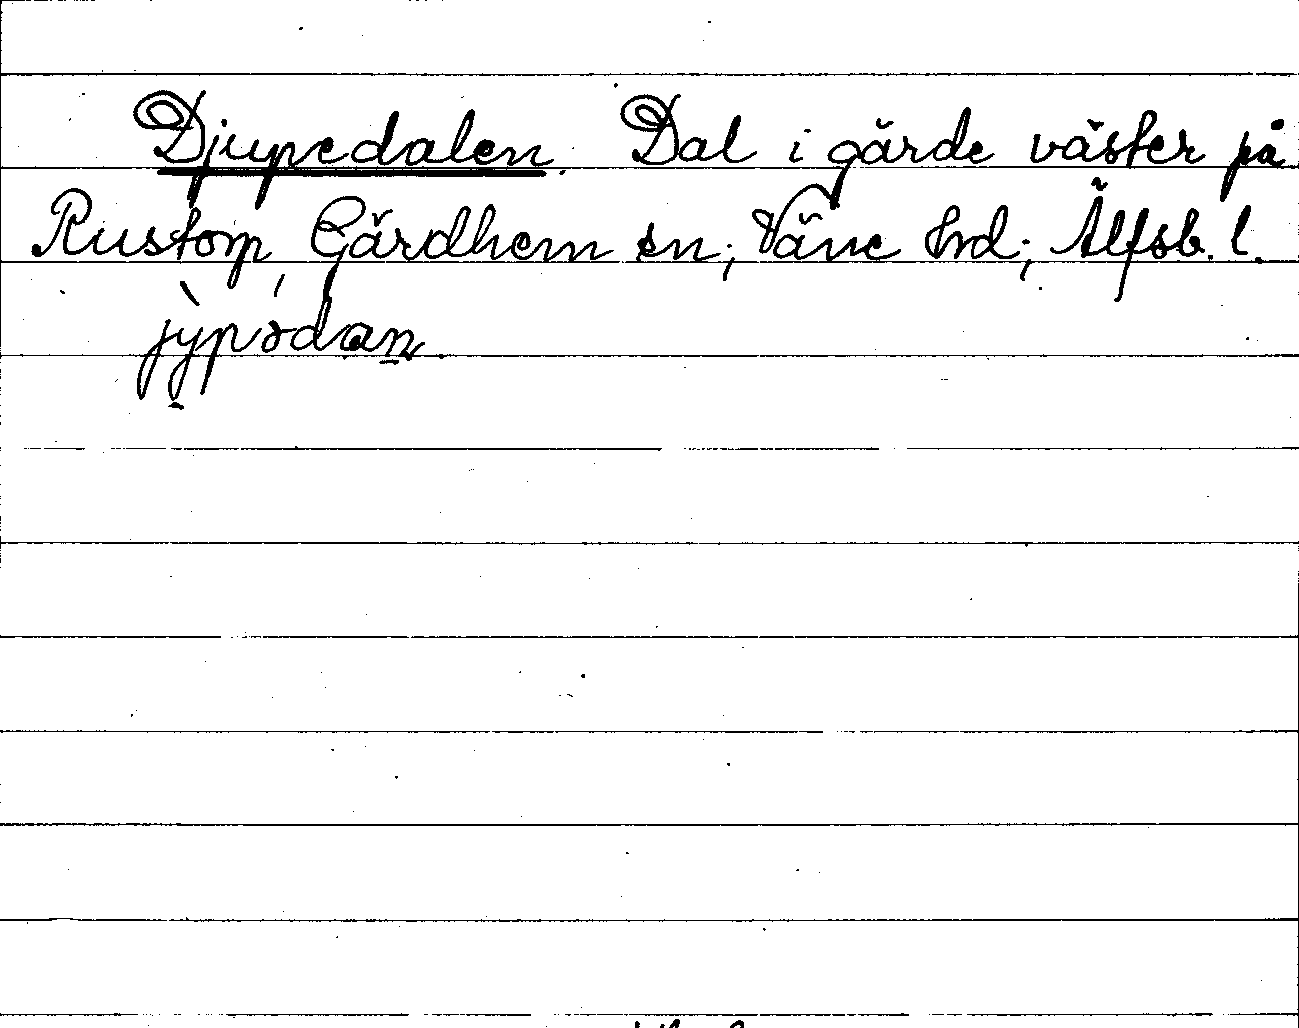 Djupedalen. Dal i gärde väster på
Rustorp, Gärdhem sn; Väne hrd; Älfsb. l.
jỳpədan.